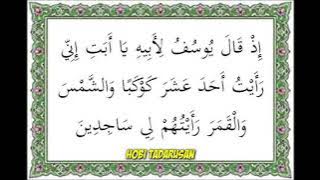 إِذْ قَالَ يُوسُفُ لِأَبِيهِ يَا أَبَتِ إِنِّي
رَأَيْتُ أَحَدَ عَشَرَ كَوْكَبًا وَالشَّمْسَ
وَالْقَمَرَ رَأَيْتُهُمْ لِي سَاجِدِينَ
HOBI TADARUSAN